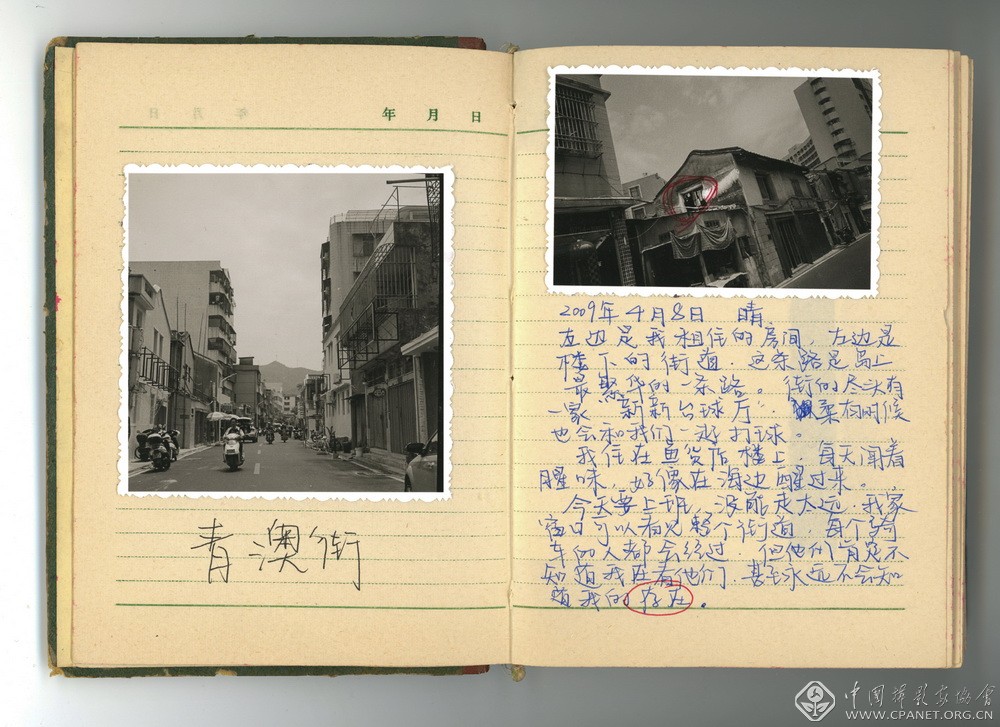 年 月 日
青澳街
2009年4月8日 晴
左边是我租住的房间，左边是
楼下的街道．这条路是岛上
最繁华的一条路。街的尽头有
一家“新新台球厅”．柔有时候
也会和我们一起打球。
我住在鱼货店楼上．每天闻着
腥味．好像在海边醒过来．
今天要上班，没能走太远．我家
窗口可以看见整个街道．每个骑
车的人都会经过．但他们肯定不
知道我在看他们．甚至永远不会知
道我的存在．
中国摄影家协会
WWW.CPANET.ORG.CN